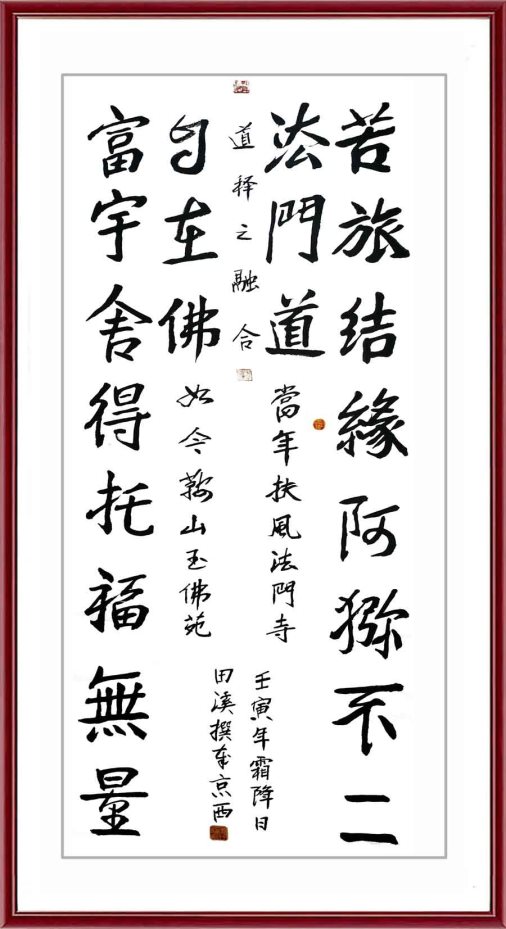 苦旅结緣阿猕不二
法門道
當年扶風法門寺
道择之融合
壬寅年霜降日
田溪撰京西
自在佛
如今鞍山玉佛苑
富宇舍得托福無量